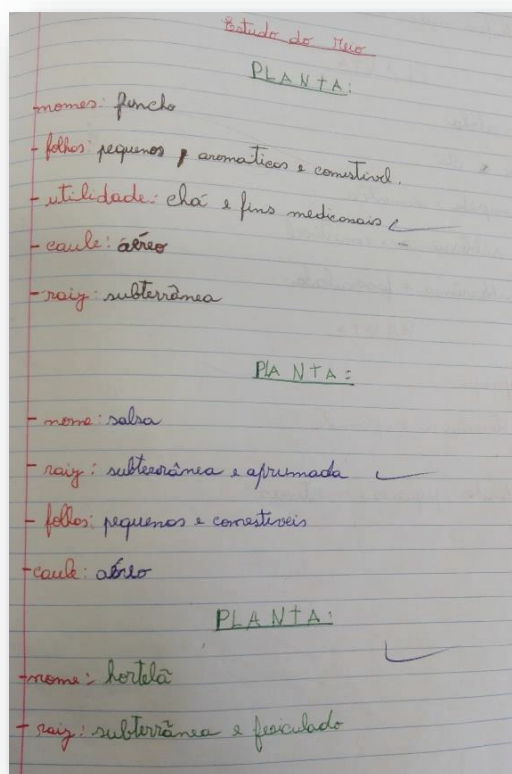 Estudo do Meio
PLANTA:
-nomes: funcho
- folhas: pequenos, aromaticos e comestivel.
- utilidade: chá e fins medicionais
- caule: aéreo
- raiz: subterrânea
PLANTA:
- nome: salsa
- raiz: subterrânea e aprumada
- folhas: pequenos e comestiveis
-caule: aéreo
PLANTA:
-nome: hortelã
- raiz: subterrânea e fesiculado